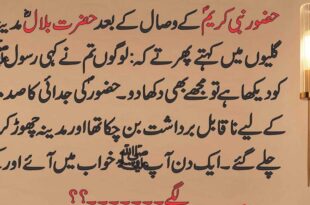 حضور نبی کریمؐ کے وصال کے بعد حضرت بلالؓ مدینہ
گلیوں میں کہتے پھرتے کہ: لوگوں تم نے کہی رسول ﷺ
کو دیکھا ہے تو مجھے بھی دکھا دو۔ حضورؐ کی جدائی کا صدمہ
کے لیے نا قابل برداشت بن چکا تھا اور مدینہ چھوڑ کر
چلے گئے۔ ایک دن آپ ﷺ خواب میں آئے اور کہ
لگے۔۔۔۔۔۔۔؟؟